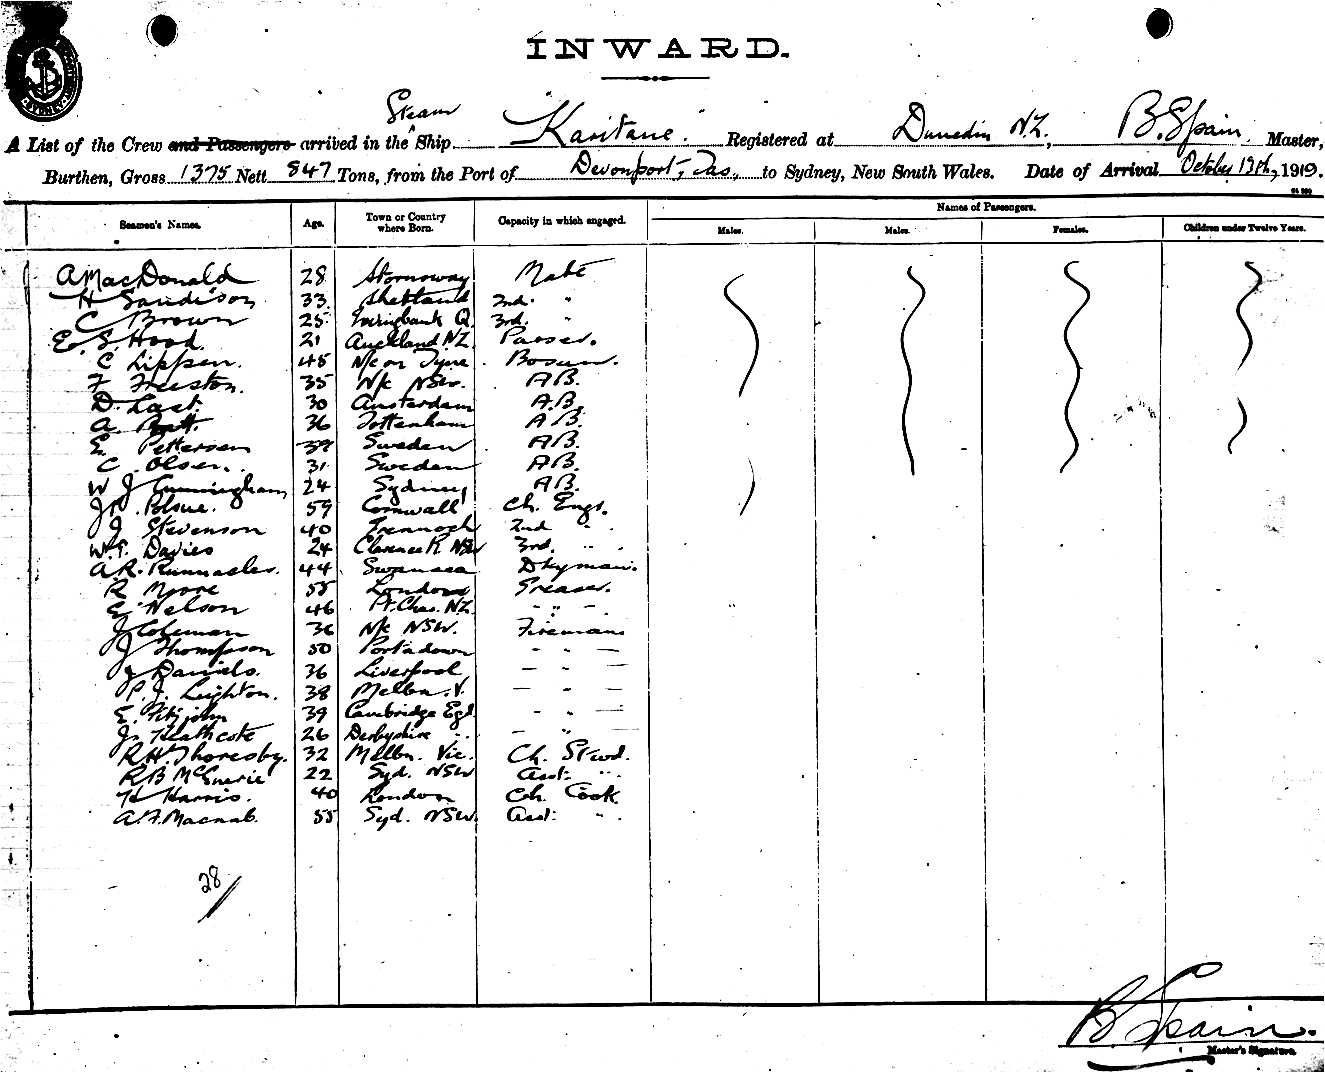 INWARD.
Steam
A List of the Crew and Passengers arrived in the Ship "Karitane." Registered at Dunedin N.Z., B. Spain Master,
Burthen, Gross 1375 Nett 847 Tons, from the Port of Devonport, Tas., to Sydney, New South Wales. Date of Arrival October 13th, 1919.
Names of Passengers.
Seamen's Names. Age. Town or Country where Born. Capacity in which engaged. Males. Males. Females. Children under Twelve Years.
A MacDonald 28 Stornoway Mate
H Sandison 33 Shetland 2nd. "
C Brown 25 Q. 3rd. "
E. S. Hood. 21 Auckland N.Z. Purser.
C Lippen. 45 N/c on Tyne Bosun.
F Freeston. 35 N/c NSW. A.B.
D. Last. 30 Amsterdam A.B.
A. 36 Tottenham A.B.
E. Pettersen 39 Sweden A.B.
C Olsen. 31 Sweden A.B.
W J Cunningham 24 Sydney A.B.
59 Cornwall Ch. Engr.
J Stevenson 40 2nd "
W. T. Davies 24 Clarence R. NSW 3rd. "
A. R. Runnacles. 44 Swansea Dkyman.
R Moore 55 London Greaser.
E Nelson 46 Pt. Chas. N.Z. - " -
J Coleman 36 N/c NSW. Fireman
J Thompson 50 Portadown - " -
J Daniels. 36 Liverpool - " -
P. J. Leighton. 38 Melbn. V. - " -
E. Fitzjohn 39 Cambridge Egd. - " -
Js Heathcote 26 Derbyshire " - " -
R. H. Thoresby. 32 Melbn. Vic. Ch. Stwd.
R B 22 Syd. NSW Asst. "
H Harris. 40 London Ch. Cook.
A. F. Macnab. 55 Syd. NSW. Asst. "
28/
B Spain.
Master's Signature.